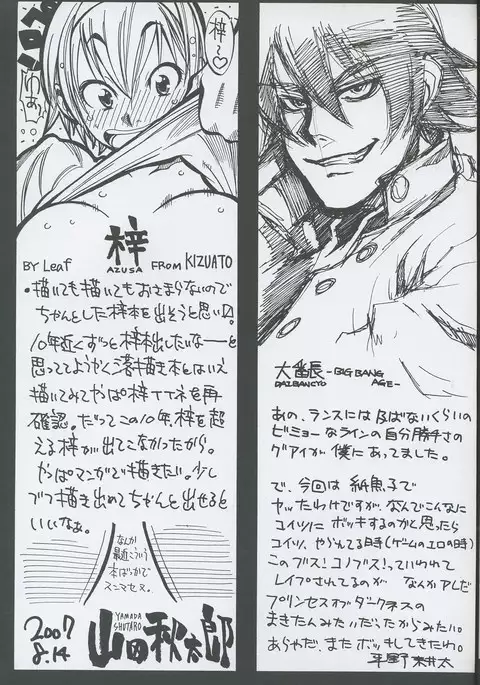 梓〜♡
梓
AZUSA
BY Leaf
FROM KIZUATO
・描いても描いてもおさまらないので
ちゃんとした梓本を出そうと思い〼。
10年近くずっと梓本出したいなーと
思っててようやく落描き本とはいえ
描いてみてやっぱ梓イイネを再
確認。だってこの10年、梓を超
える梓が出てこなかったから。
やっぱマンガで描きたい。少し
づつ描き出めてちゃんと出せると
いいなぁ。
なんか
最近こういう
本ばっかで
スミマセヌ。
2007
8.14
YAMADA
SHUTARO
山田秋太郎
大番長 -BIG BANG
DAIBANCYO AGE-
あの、ランスにはおよばないくらいの
ビミョーなラインの自分勝手さの
グアイが僕にあってました。
で、今回は紙魚子で
ヤッたわけですが、なんでこんなに
コイツにボッキするのかと思ったら
コイツ、ヤられてる時(ゲームのエロの時)
このブス!コノブス!っていわれて
レイプされてるのがなんかアレだ
プリンセスオブダークネスの
まきたんみたいだったからみたい。
あらやだ、またボッキしてきたわ。
平野耕太